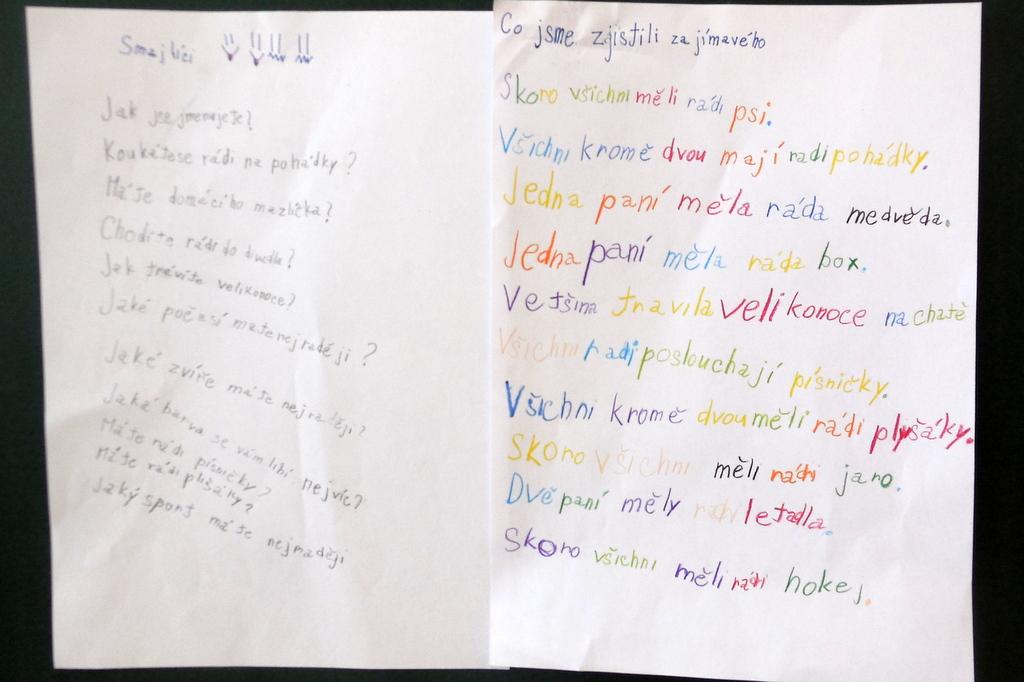 Smajlíci
Jak jse jmenujete?
Koukátese rádi na pohádky?
Máte domácího mazlíčka?
Chodíte rádi do divadla?
Jak trávite velikonoce?
Jaké počesí matenejraději?
Jaké zvíře máte nejraději?
Jaká barva se vám líbí nejvíc?
Máte rádi písničky?
Máte rádi plišáky?
Jaký sport máte nejraději
Co jsme zjistili zajímavého
Skoro všichni měli rádi psi.
Všichni kromě dvou mají radi pohádky.
Jedna paní měla ráda medvěda.
Jedna paní měla ráda box.
Vetšina travila velikonoce na chatě
Všichni radi poslouchají písničky.
Všichni kromě dvou měli rádi plyšáky.
Skoro všichni měli rádi jaro.
Dvě paní měly rady letadla.
Skoro všichni měli rádi hokej.